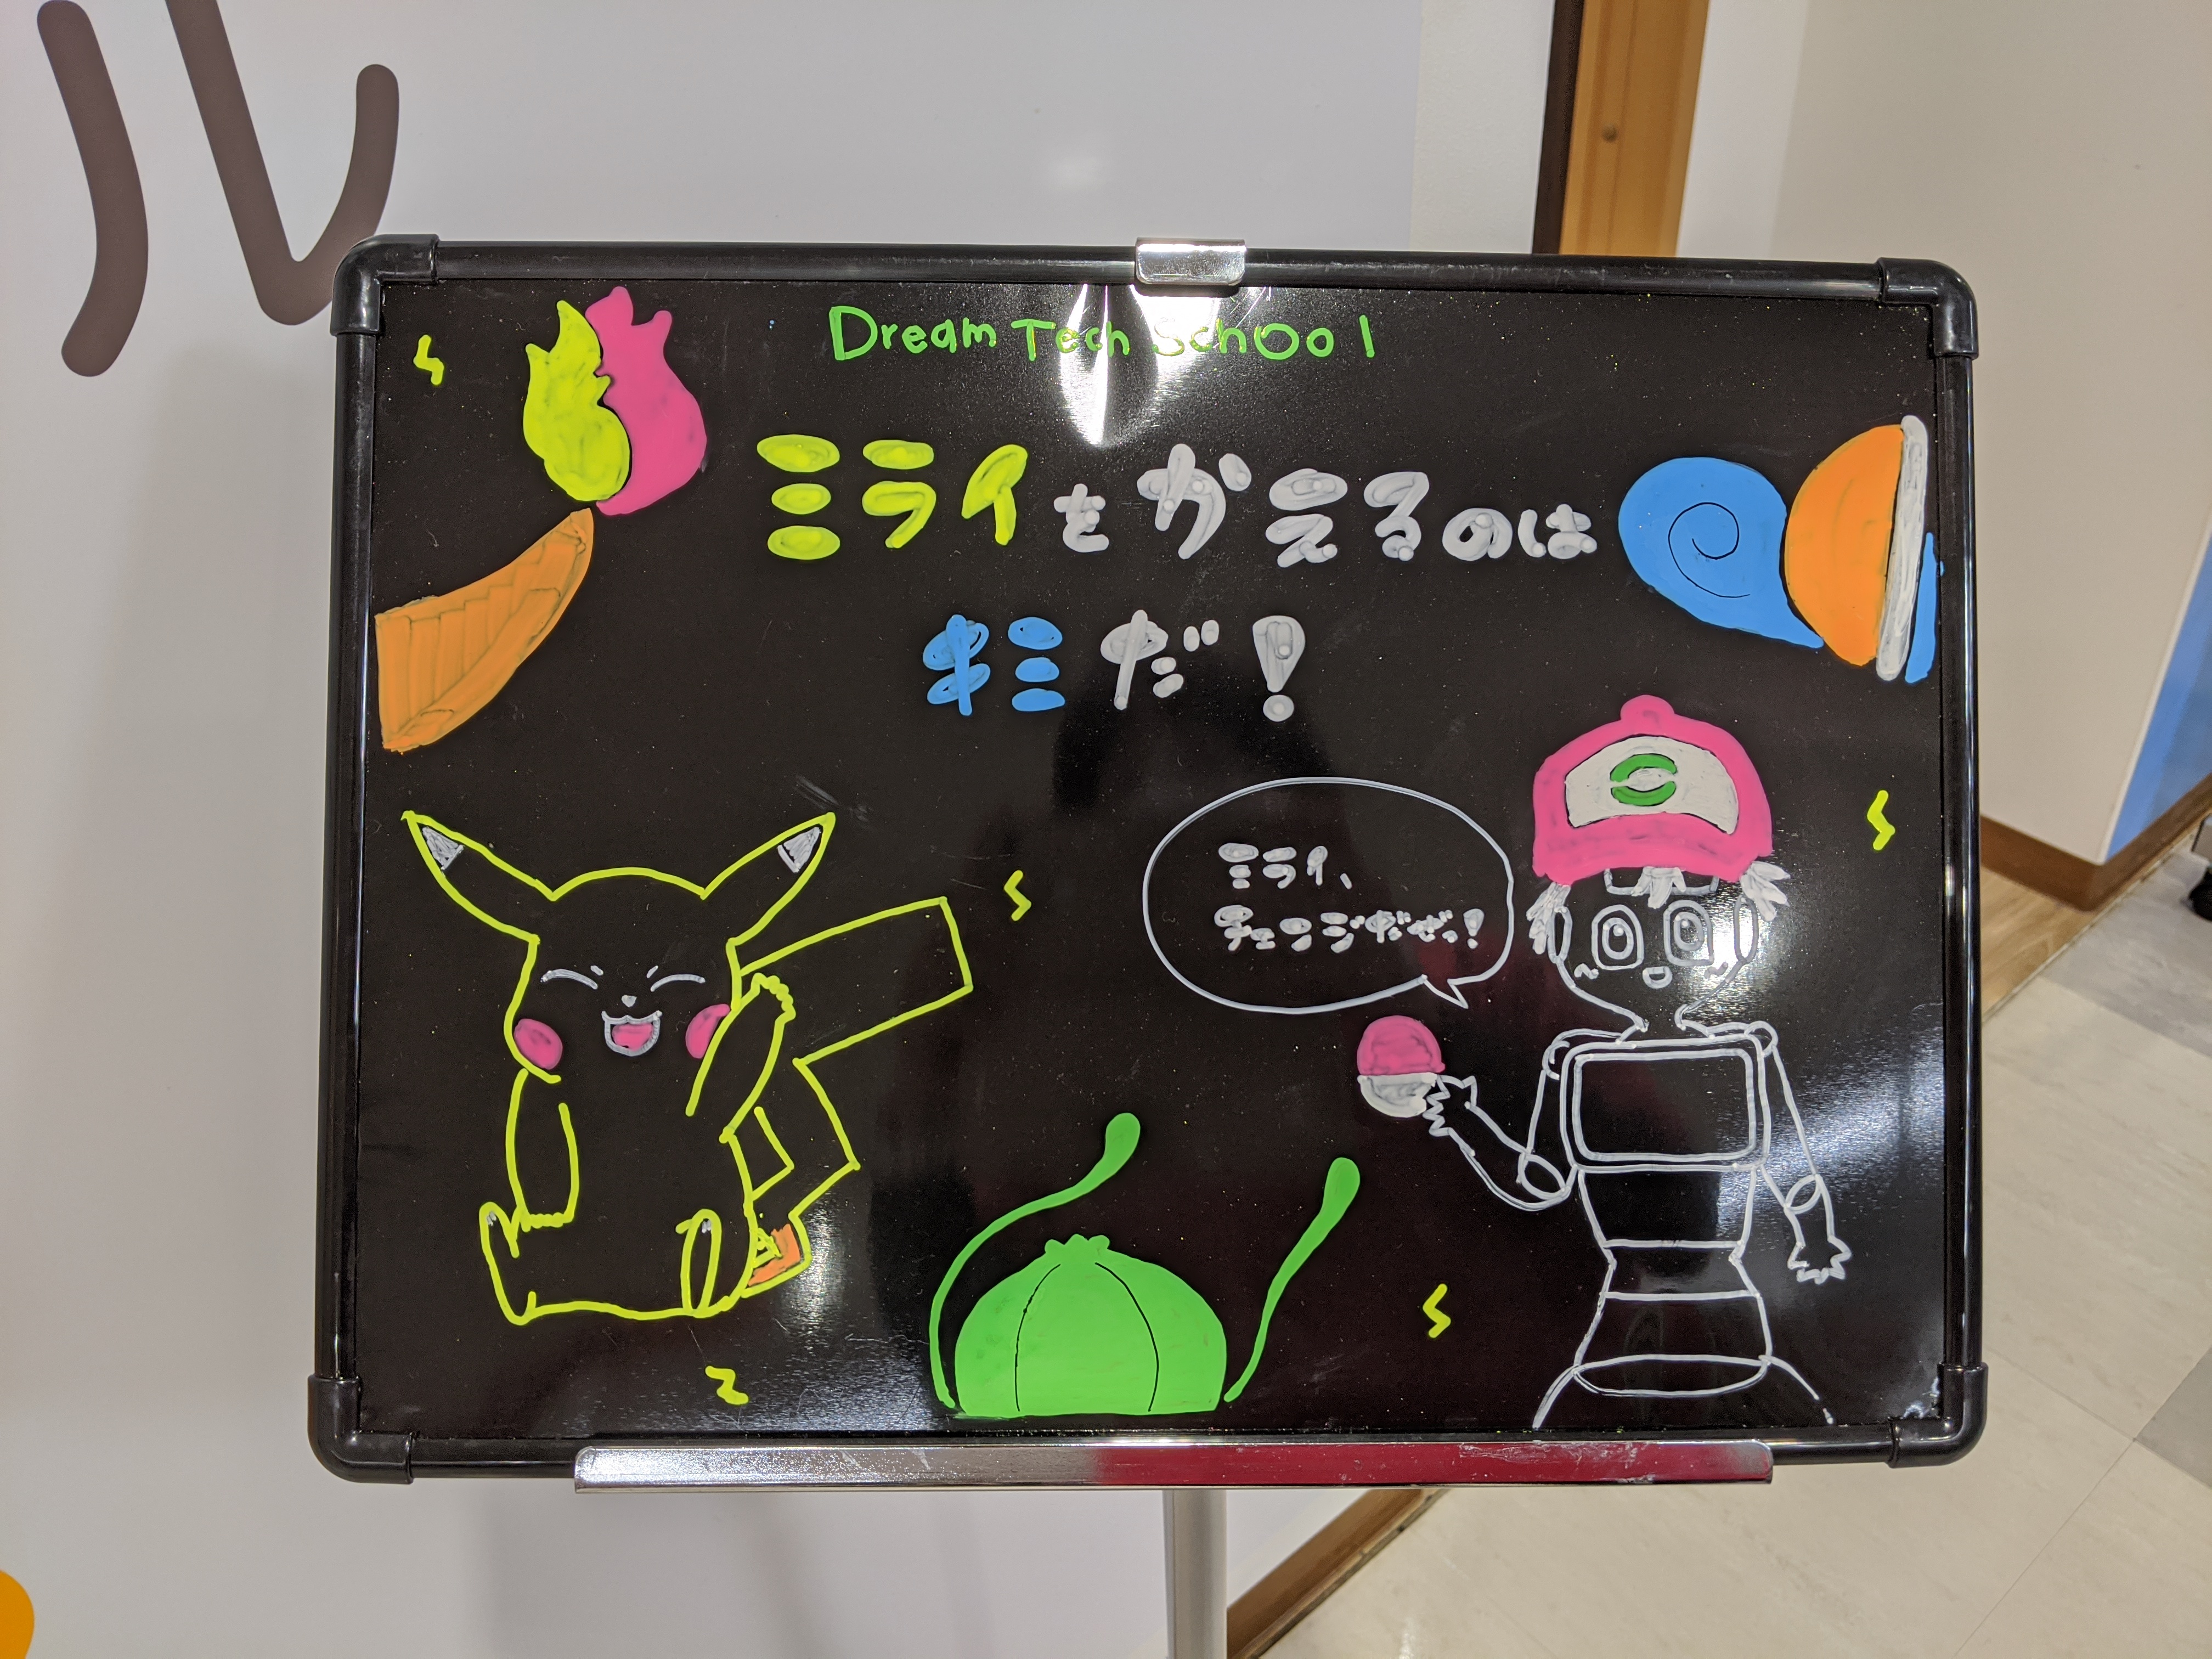 ル
Dream Tech School
ミライをかえるのは
キミだ!
ミライ、
チェンジだぜっ!